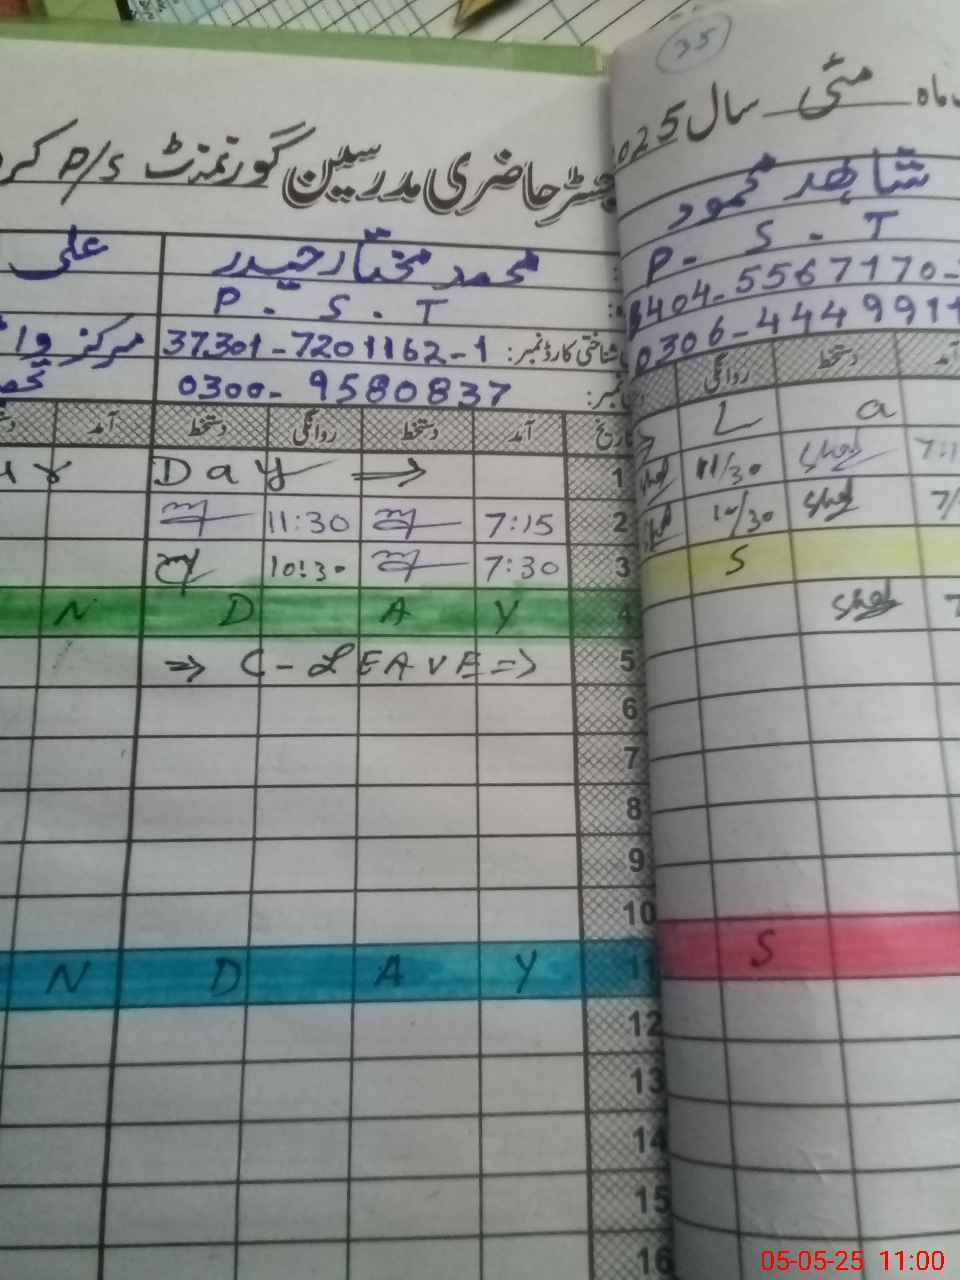 35
ماہ مئی سال 2025
رجسٹر حاضری مدرسین گورنمنٹ P/S
شاہد محمود
محمد مختار حیدر
علی
P. S. T
P. S. T
3404-5567170-
شناختی کارڈ نمبر: 37301-7201162-1
مرکز
0306-444991
نمبر: 0300-9580837
آمد دستخط روانگی
تاریخ آمد دستخط روانگی دستخط آمد
L a
1 Day ⇒
11/30 7:1
2 7:15 11:30
10/30 7/
3 7:30 10:30
S
4 N D A Y
5 ⇒ C-LEAVE ⇒
6
7
8
9
10
S
11 N D A Y
12
13
14
15
16
05-05-25 11:00